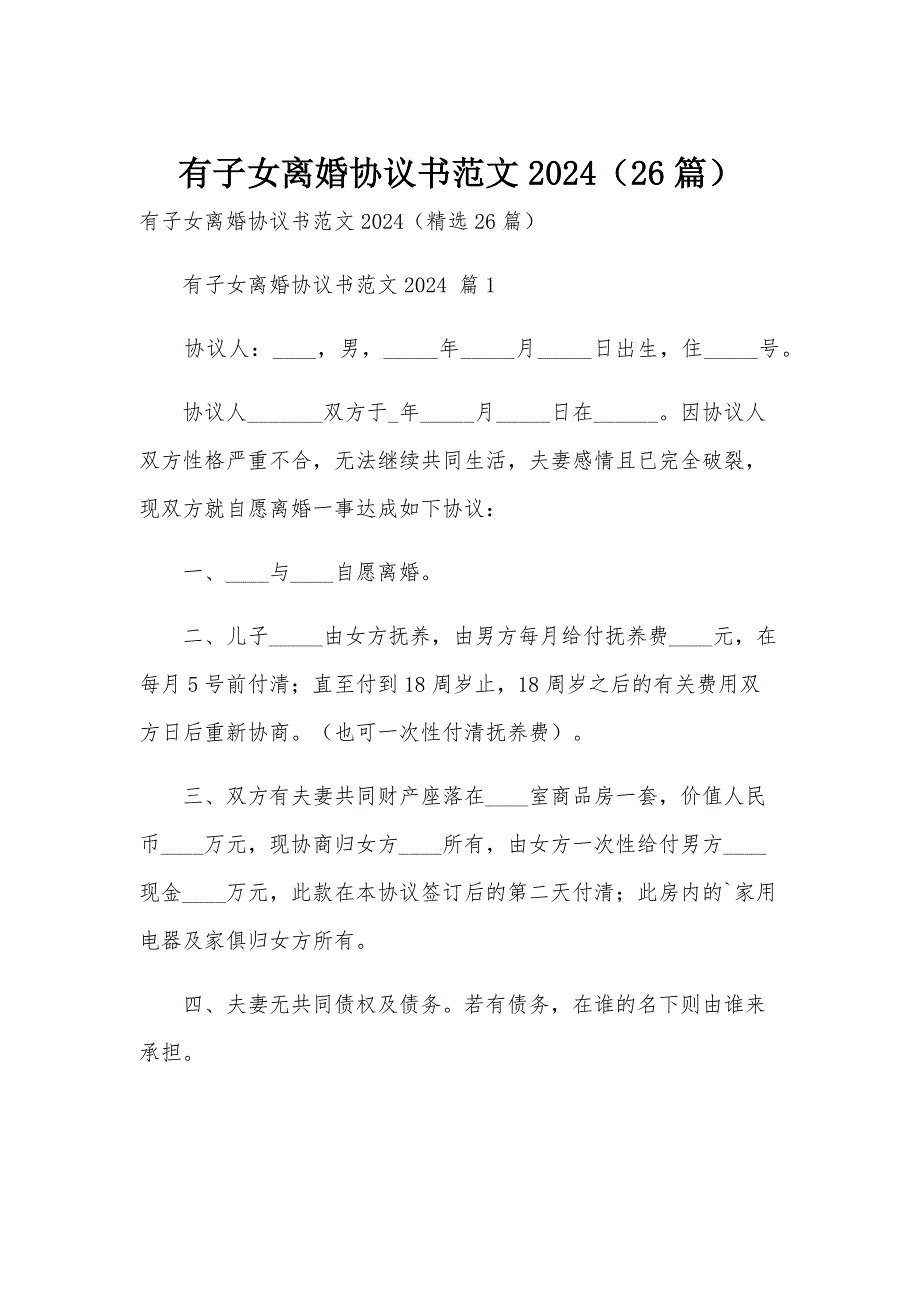 有子女离婚协议书范文2024（26篇）
有子女离婚协议书范文2024（精选26篇）
有子女离婚协议书范文2024 篇1
协议人：____，男，_____年_____月_____日出生，住_____号。
协议人_______双方于_年_____月_____日在______。因协议人
双方性格严重不合，无法继续共同生活，夫妻感情且已完全破裂，
现双方就自愿离婚一事达成如下协议：
一、____与____自愿离婚。
二、儿子_____由女方抚养，由男方每月给付抚养费____元，在
每月5号前付清；直至付到18周岁止，18周岁之后的有关费用双
方日后重新协商。（也可一次性付清抚养费）。
三、双方有夫妻共同财产座落在____室商品房一套，价值人民
币____万元，现协商归女方____所有，由女方一次性给付男方____
现金____万元，此款在本协议签订后的第二天付清；此房内的`家用
电器及家俱归女方所有。
四、夫妻无共同债权及债务。若有债务，在谁的名下则由谁来
承担。